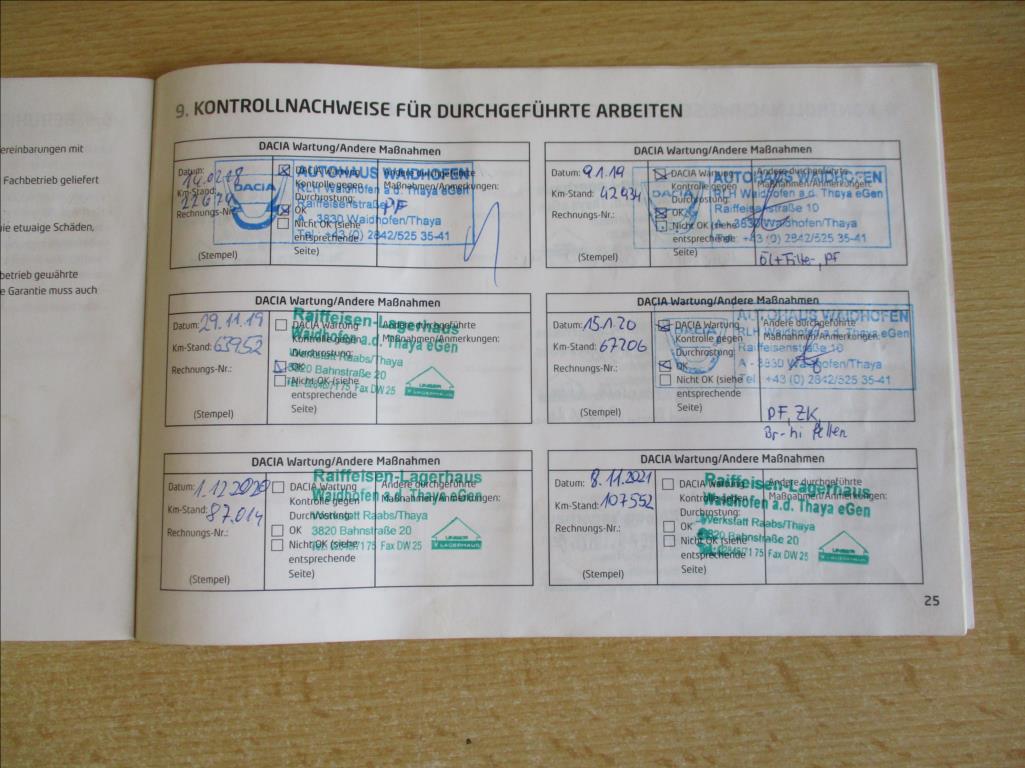 ereinbarungen mit
Fachbetrieb geliefert
ie etwaige Schäden,
betrieb gewährte
e Garantie muss auch
9. KONTROLLNACHWEISE FÜR DURCHGEFÜHRTE ARBEITEN
DACIA Wartung/Andere Maßnahmen
Datum: 14.02.18
Km-Stand: 22679
Rechnungs-Nr.:
(Stempel)
DACIA Wartung
Kontrolle gegen
Durchrostung:
OK
Nicht OK (siehe
entsprechende
Seite)
Andere durchgeführte
Maßnahmen/Anmerkungen:
PF
DACIA
AUTOHAUS WAIDHOFEN
RLH Waidhofen a.d. Thaya eGen
Raiffeisenstraße 10
A - 3830 Waidhofen/Thaya
Tel.: +43 (0) 2842/525 35-41
DACIA Wartung/Andere Maßnahmen
Datum: 9.1.19
Km-Stand: 42434
Rechnungs-Nr.:
(Stempel)
DACIA Wartung
Kontrolle gegen
Durchrostung:
OK
Nicht OK (siehe
entsprechende
Seite)
Andere durchgeführte
Maßnahmen/Anmerkungen:
Öl+Filter, PF
DACIA
AUTOHAUS WAIDHOFEN
RLH Waidhofen a.d. Thaya eGen
Raiffeisenstraße 10
A - 3830 Waidhofen/Thaya
Tel.: +43 (0) 2842/525 35-41
DACIA Wartung/Andere Maßnahmen
Datum: 29.11.19
Km-Stand: 63952
Rechnungs-Nr.:
(Stempel)
DACIA Wartung
Kontrolle gegen
Durchrostung:
OK
Nicht OK (siehe
entsprechende
Seite)
Andere durchgeführte
Maßnahmen/Anmerkungen:
Raiffeisen-Lagerhaus
Waidhofen a.d. Thaya eGen
Werkstatt Raabs/Thaya
3820 Bahnstraße 20
Tel. 02846/7175 Fax DW 25
UNSER
LAGERHAUS
DACIA Wartung/Andere Maßnahmen
Datum: 15.1.20
Km-Stand: 67206
Rechnungs-Nr.:
(Stempel)
DACIA Wartung
Kontrolle gegen
Durchrostung:
OK
Nicht OK (siehe
entsprechende
Seite)
Andere durchgeführte
Maßnahmen/Anmerkungen:
PF, ZK,
Br-hi
DACIA
AUTOHAUS WAIDHOFEN
RLH Waidhofen a.d. Thaya eGen
Raiffeisenstraße 10
A - 3830 Waidhofen/Thaya
Tel.: +43 (0) 2842/525 35-41
DACIA Wartung/Andere Maßnahmen
Datum: 1.12.2020
Km-Stand: 87.014
Rechnungs-Nr.:
(Stempel)
DACIA Wartung
Kontrolle gegen
Durchrostung:
OK
Nicht OK (siehe
entsprechende
Seite)
Andere durchgeführte
Maßnahmen/Anmerkungen:
Raiffeisen-Lagerhaus
Waidhofen a.d. Thaya eGen
Werkstatt Raabs/Thaya
3820 Bahnstraße 20
Tel. 02846/7175 Fax DW 25
UNSER
LAGERHAUS
DACIA Wartung/Andere Maßnahmen
Datum: 8.11.2021
Km-Stand: 107552
Rechnungs-Nr.:
(Stempel)
DACIA Wartung
Kontrolle gegen
Durchrostung:
OK
Nicht OK (siehe
entsprechende
Seite)
Andere durchgeführte
Maßnahmen/Anmerkungen:
Raiffeisen-Lagerhaus
Waidhofen a.d. Thaya eGen
Werkstatt Raabs/Thaya
3820 Bahnstraße 20
Tel. 02846/7175 Fax DW 25
UNSER
LAGERHAUS
25